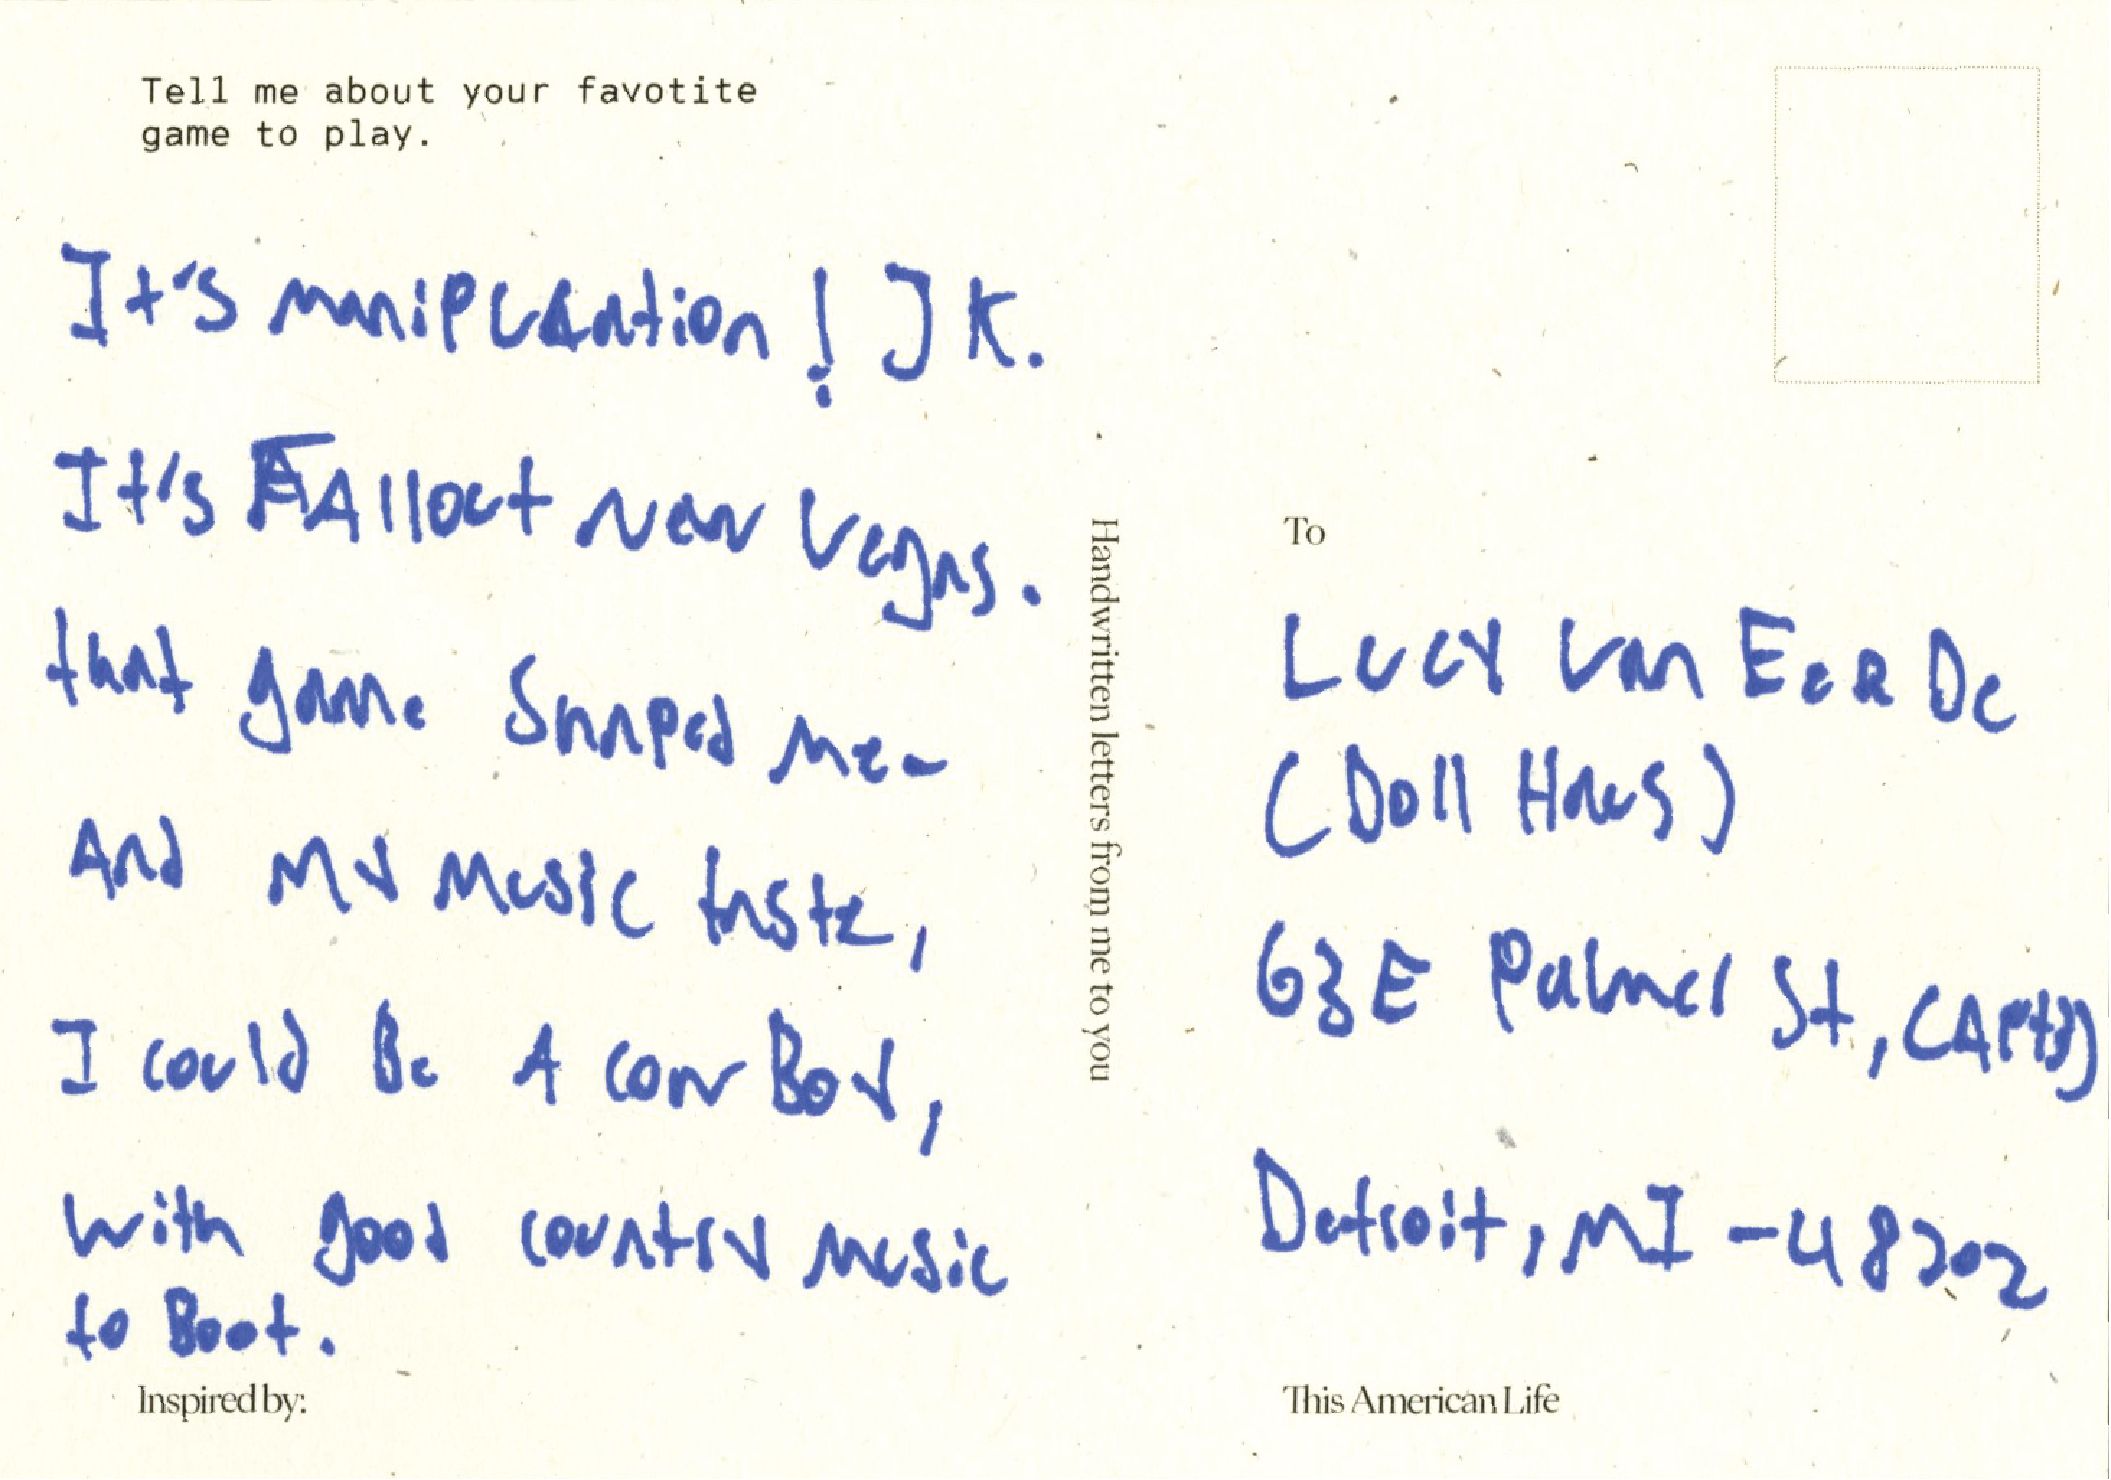 Tell me about your favotite
game to play.
It's manipulation! JK.
It's FAllout New Vegas.
that game Shaped me-
And MY Music taste,
I could Be A cowBoy,
with good country Music
to Boot.
Inspired by:
Handwritten letters from me to you
To
Lucy Van EeRDe
(Doll Haus)
63 E Palmer St, (APt
Detroit, MI - 48202
This American Life